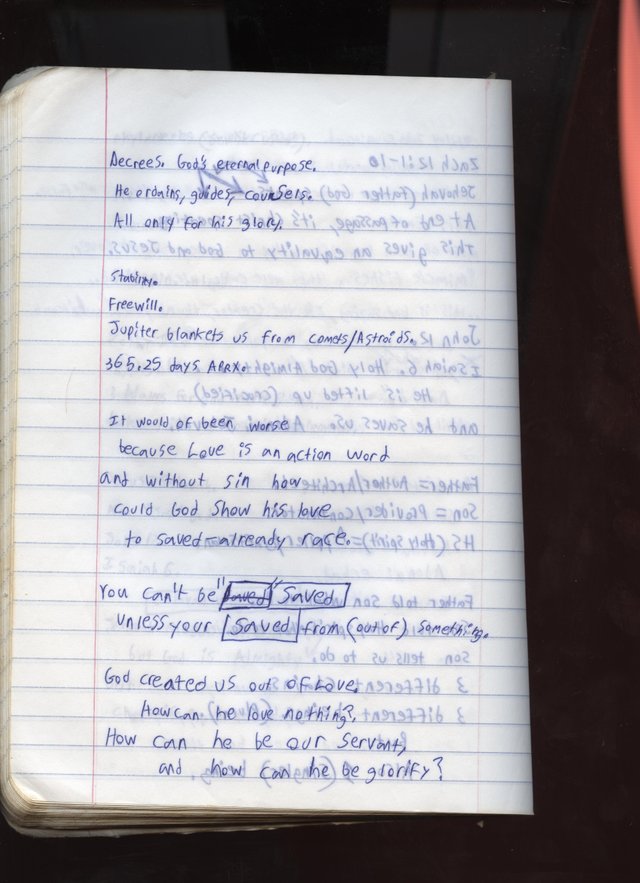 Decrees. God's eternal purpose.
He ordains, guides, counsels.
All only for his glory.
Stability.
Freewill.
Jupiter blankets us from comets/Astroids.
365.25 days APRX.
It would of been worse
because Love is an action word
and without sin how
could God show his love
to saved-already race.
You can't be " " Saved
unless your Saved from (out of) something.
God created us out of Love.
How can he love nothing?
How can he be our servant,
and how can he be glorify?